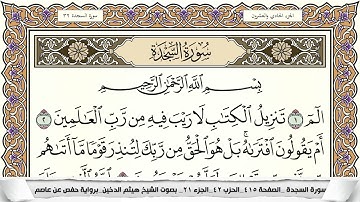 الجزء الحادي والعشرون
سورة السجدة ٣٢
سُورَةُ السَّجْدَةِ
بِسْمِ اللَّهِ الرَّحْمَٰنِ الرَّحِيمِ
الٓمٓ ١ تَنزِيلُ الْكِتَابِ لَا رَيْبَ فِيهِ مِن رَّبِّ الْعَالَمِينَ ٢
أَمْ يَقُولُونَ افْتَرَاهُ بَلْ هُوَ الْحَقُّ مِن رَّبِّكَ لِتُنذِرَ قَوْمًا مَّا أَتَاهُم
سورة السجدة _الصفحة ٤١٥_الحزب ٤٢_الجزء ٢١_ بصوت الشيخ هيثم الدخين_ برواية حفص عن عاصم